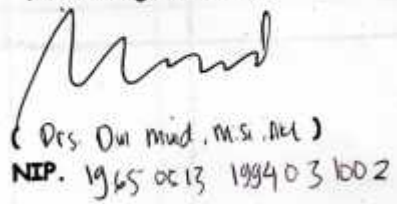 ( Drs. Dul Muid, M.Si, Akt )
NIP. 19650513 199403 1002